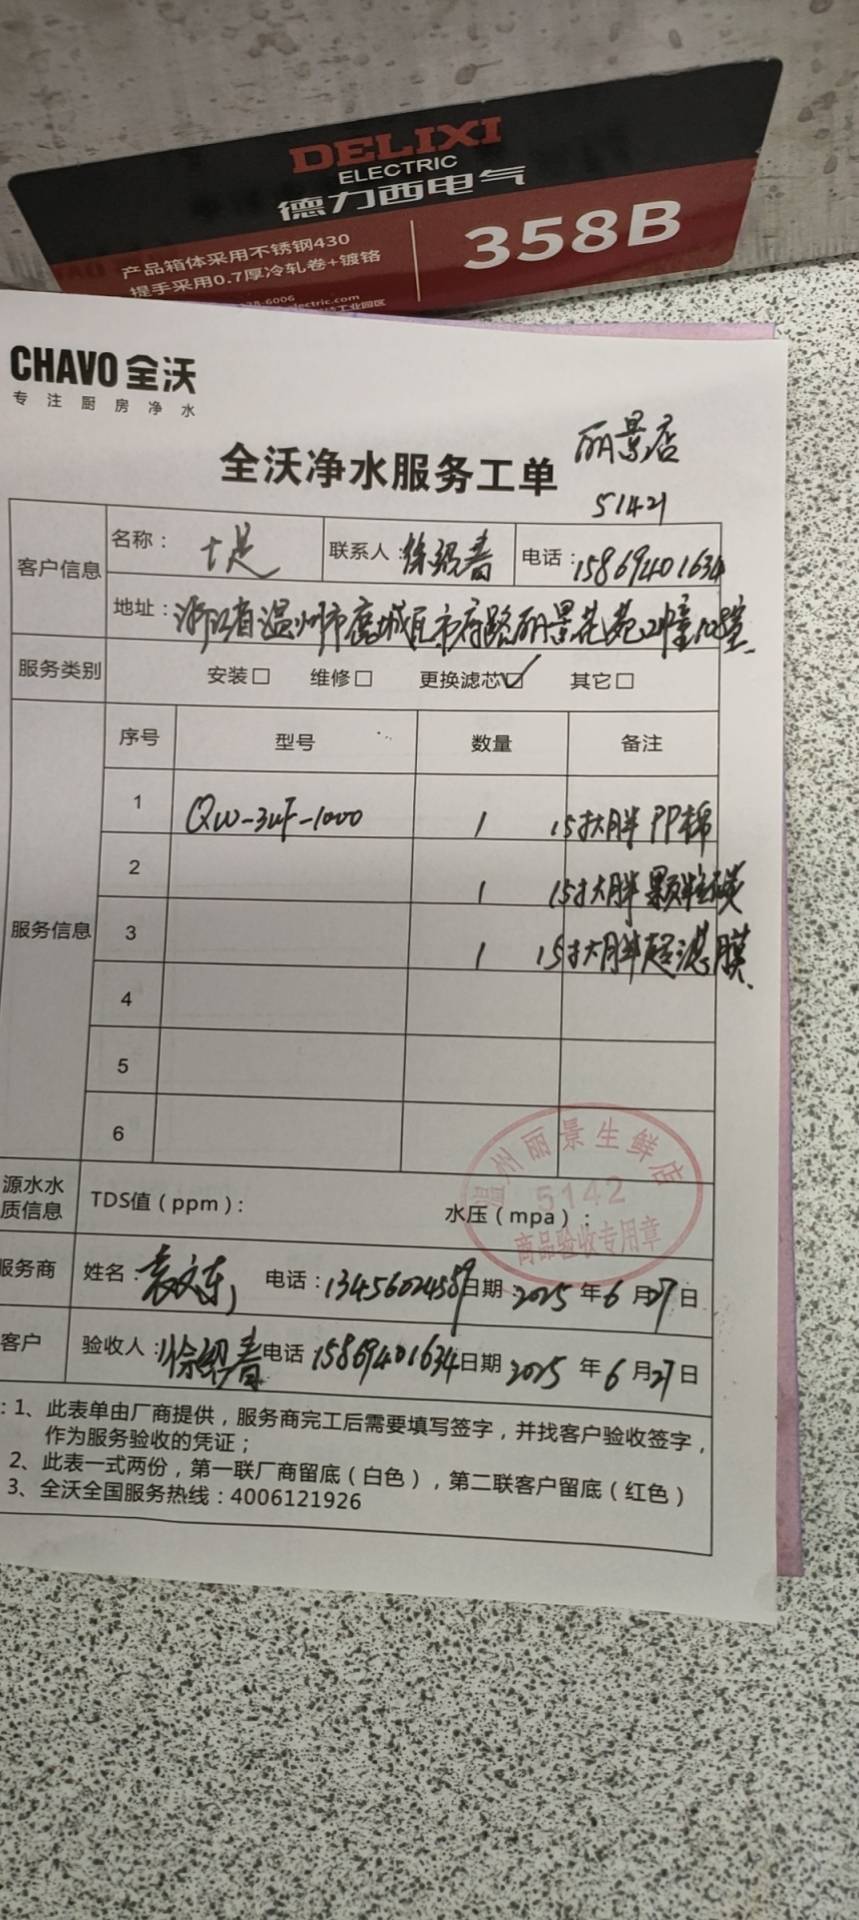 DELIXI
ELECTRIC
德力西电气
产品箱体采用不锈钢430
提手采用0.7厚冷轧卷+镀铬
358B
CHAVO 全沃
专注厨房净水
丽景店
全沃净水服务工单
51421
客户信息 名称: 联系人: 徐绍春 电话: 15869401634
地址: 浙江省温州市鹿城区市府路丽景花苑
服务类别 安装□ 维修□ 更换滤芯☑ 其它□
服务信息 序号 型号 数量 备注
1 QW-3UF-1000 1 15寸大胖PP棉
2 1 15寸大胖颗粒碳
3 1 15寸大胖超滤膜
4
5
6
温州丽景生鲜店
5142
商品验收专用章
源水水质信息 TDS值(ppm): 水压(mpa):
服务商 姓名: 袁文东 电话: 13456024589 日期: 2025年6月27日
客户 验收人: 徐绍春 电话 15869401634 日期 2025年6月27日
:1、此表单由厂商提供,服务商完工后需要填写签字,并找客户验收签字,
作为服务验收的凭证;
2、此表一式两份,第一联厂商留底(白色),第二联客户留底(红色)
3、全沃全国服务热线:4006121926